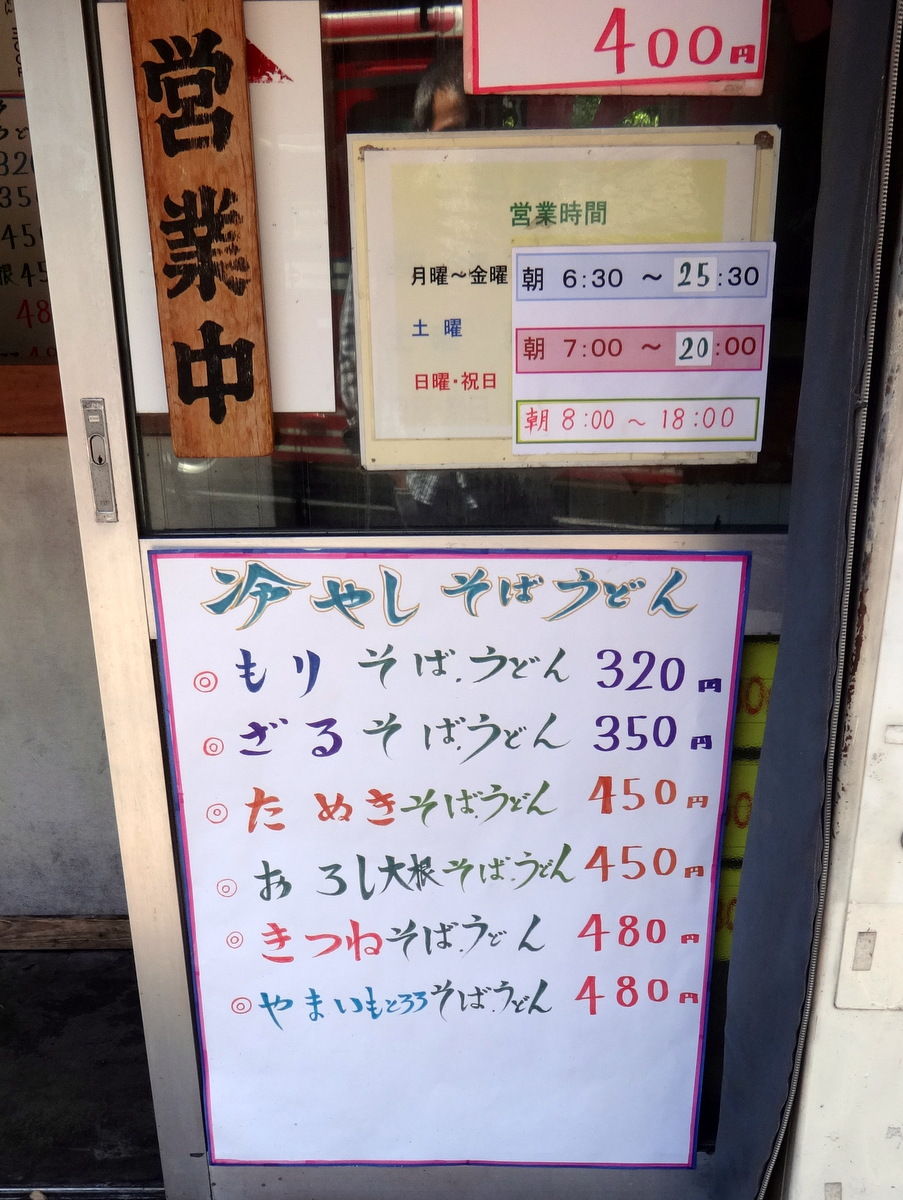 営業中
400円
営業時間
月曜～金曜 朝 6:30 ～ 25:30
土 曜 朝 7:00 ～ 20:00
日曜・祝日 朝 8:00 ～ 18:00
冷やし そばうどん
◎ もり そば.うどん 320円
◎ ざる そば.うどん 350円
◎ たぬきそば.うどん 450円
◎ おろし大根そば.うどん 450円
◎ きつねそば.うどん 480円
◎ やまいもとろろそば.うどん 480円